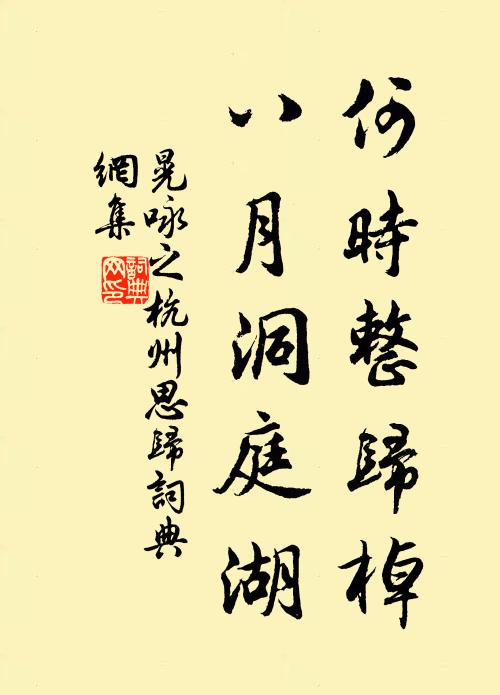 何時整歸棹
八月洞庭湖
晁咏之杭州思歸詞典
網集
詞典
網印